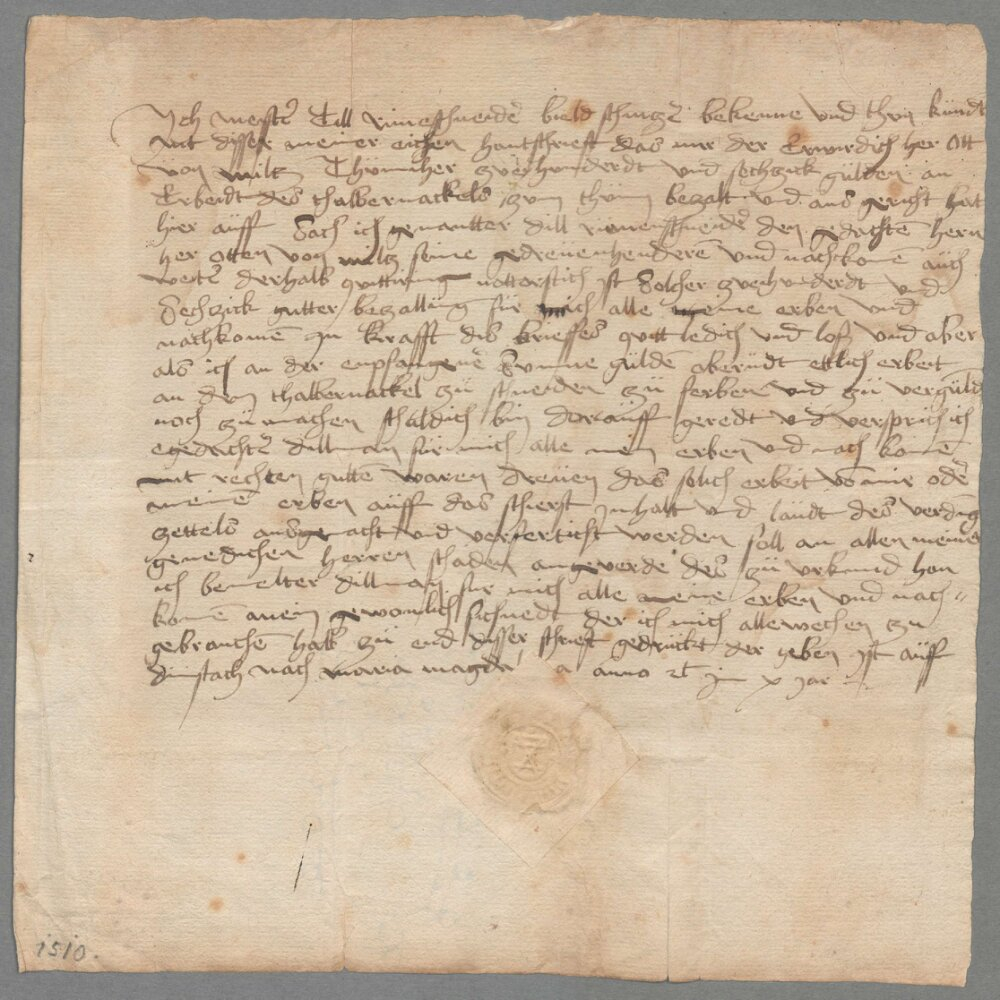 Ych meister Till rimeschneider bield schnitzer bekenne und thun kundt
mit disser meiner eichen hantschrieft das mir der Erwirdich her Ott
von Miltz Thumher zweyhunderdt und sechzick gulden an
Erbeidt des thabernackels zum thum bezalt und aus gericht hat
hier auff sach ich genantter dill riemenschneider den gedachten hern
her otten von miltz seine gedreuenhenderen und nachkomen auch
weitter derhalb quittirung notturftich ist solcher zweyhunderdt und
Sechzick gutter bezallung fur mich alle meine erben und
nachkomen In krafft dis brieffes quitt ledich und loß und aber
als ich an der enpfangener Summe gulden etlich erbeit
an dem thabernackel zu schneiden zu ferben und zu verguld
noch zu machen schuldich bin dorauff geredt und versprich ich
egedachter dillman fur mich alle mein erben und nach komen
mit rechten gutten waren dreuen das solich erbeit von mir oder
meinen erben auff das schierst Inhalt und laudt des verding
zettels ausgemacht und verferticht werden soll an allen meiner
genedichen herren schaden angeverde des zu urkund hon
ich bemelter dillman fur mich alle meine erben und nach=
komen mein gewonlich sichnedt der ich mich allewechen zu
gebrauchen halb zu end disser schrieft gedruckt der geben ist auff
dinstach nach maria magda a anno im x jar
1510.